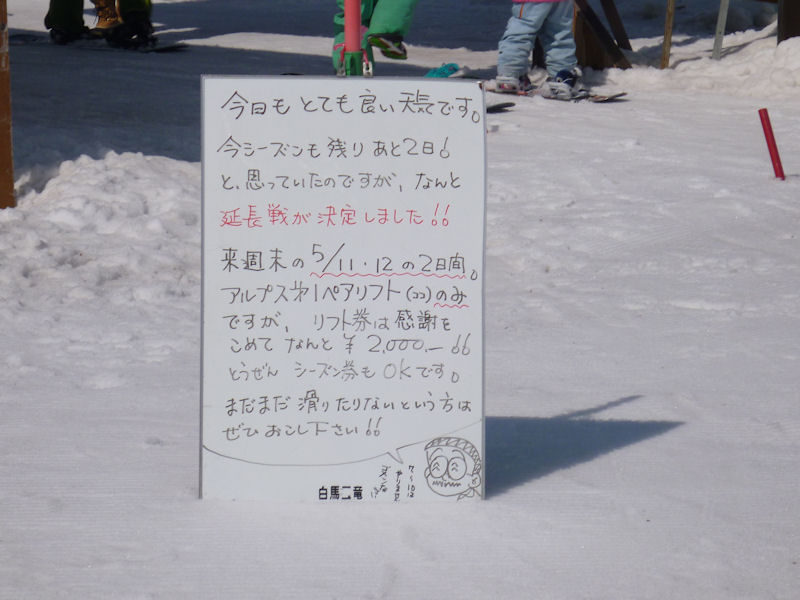 今日も とても良い天気です。
今シーズンも残り あと2日!
と、思っていたのですが、なんと
延長戦が決定しました!!
来週末の5/11・12の2日間。
アルプス第1ペアリフト(ココ)のみ
ですが、リフト券は感謝を
こめて なんと ¥2,000.-!!
とうぜん シーズン券もOKです。
まだまだ滑りたりないという方は
ぜひおこし下さい!!
7〜10は
やりません
ゴメンなさい
白馬二竜